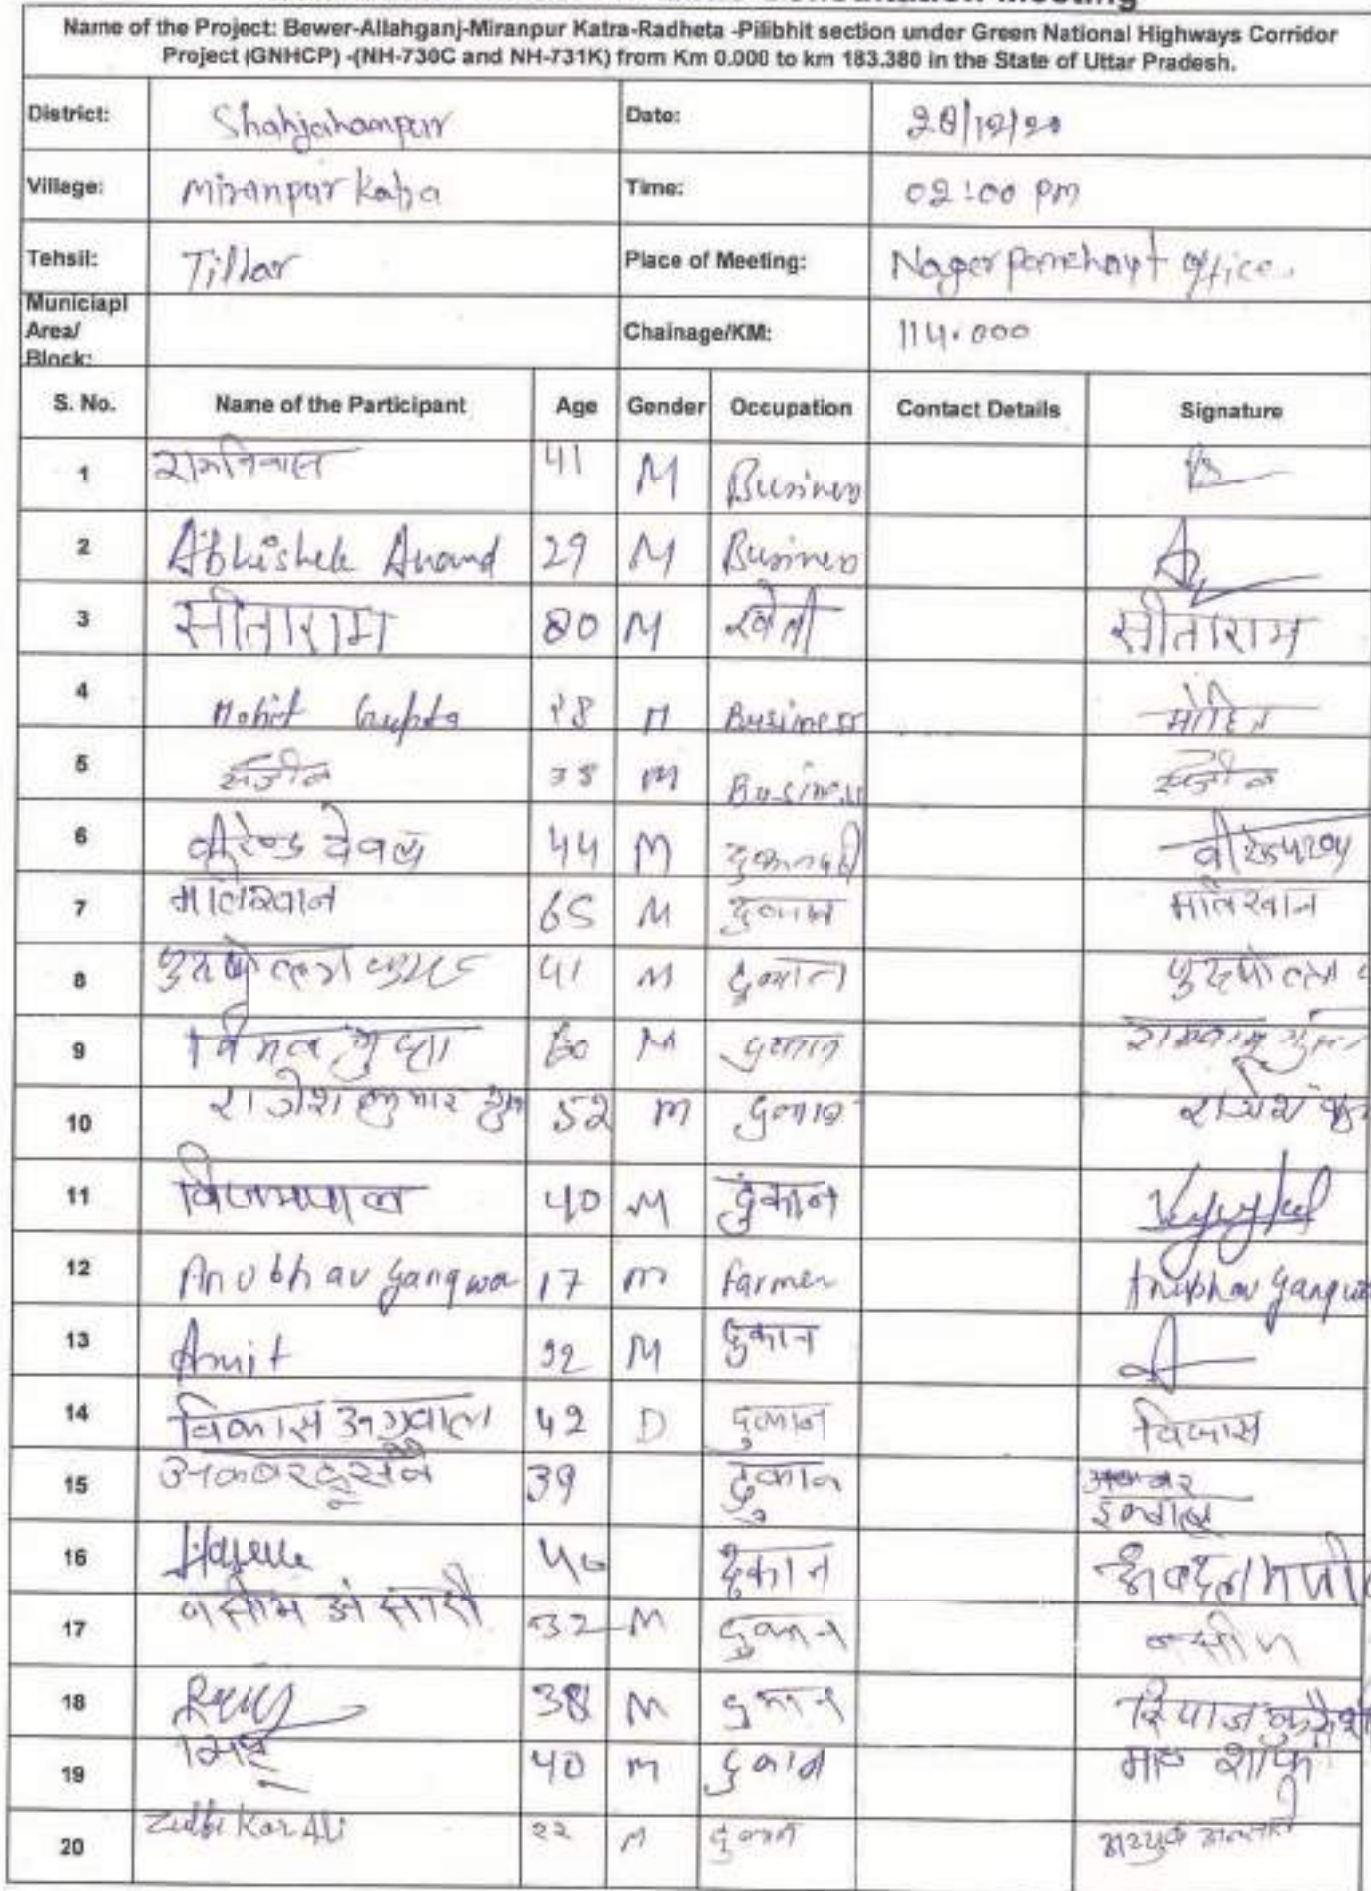 Consultation Meeting
Name of the Project: Bewer-Allahganj-Miranpur Katra-Radheta -Pilibhit section under Green National Highways Corridor
Project (GNHCP) -(NH-730C and NH-731K) from Km 0.000 to km 183.380 in the State of Uttar Pradesh.
District: Shahjahanpur Date: 28/12/20
Village: Miranpur Katra Time: 02:00 PM
Tehsil: Tilhar Place of Meeting: Nagar Panchayt Office
Municiapl Area/ Block: Chainage/KM: 114.000
S. No. Name of the Participant Age Gender Occupation Contact Details Signature
1 रामनिवास 41 M Business
2 Abhishek Anand 29 M Business
3 सीताराम 80 M खेती सीताराम
4 Mohit Gupta 28 M Business मोहित
5 38 M Business
6 44 M
7 65 M दुकान
8 पुरुषोत्तम कुमार 41 M दुकान पुरुषोत्तम
9 विमल गुप्ता 60 M दुकान
10 राजेश कुमार गुप्ता 52 M दुकान राजेश
11 विजयपाल 40 M दुकान
12 Anubhav Gangwar 17 M Farmer Anubhav Gangwa
13 Amit 32 M दुकान
14 विकास अग्रवाल 42 D दुकान विकास
15 39 दुकान
16 दुकान
17 वसीम अंसारी 32 M दुकान वसीम
18 38 M दुकान रियाज कुरैशी
19 40 M दुकान
20 Ali 22 M दुकान